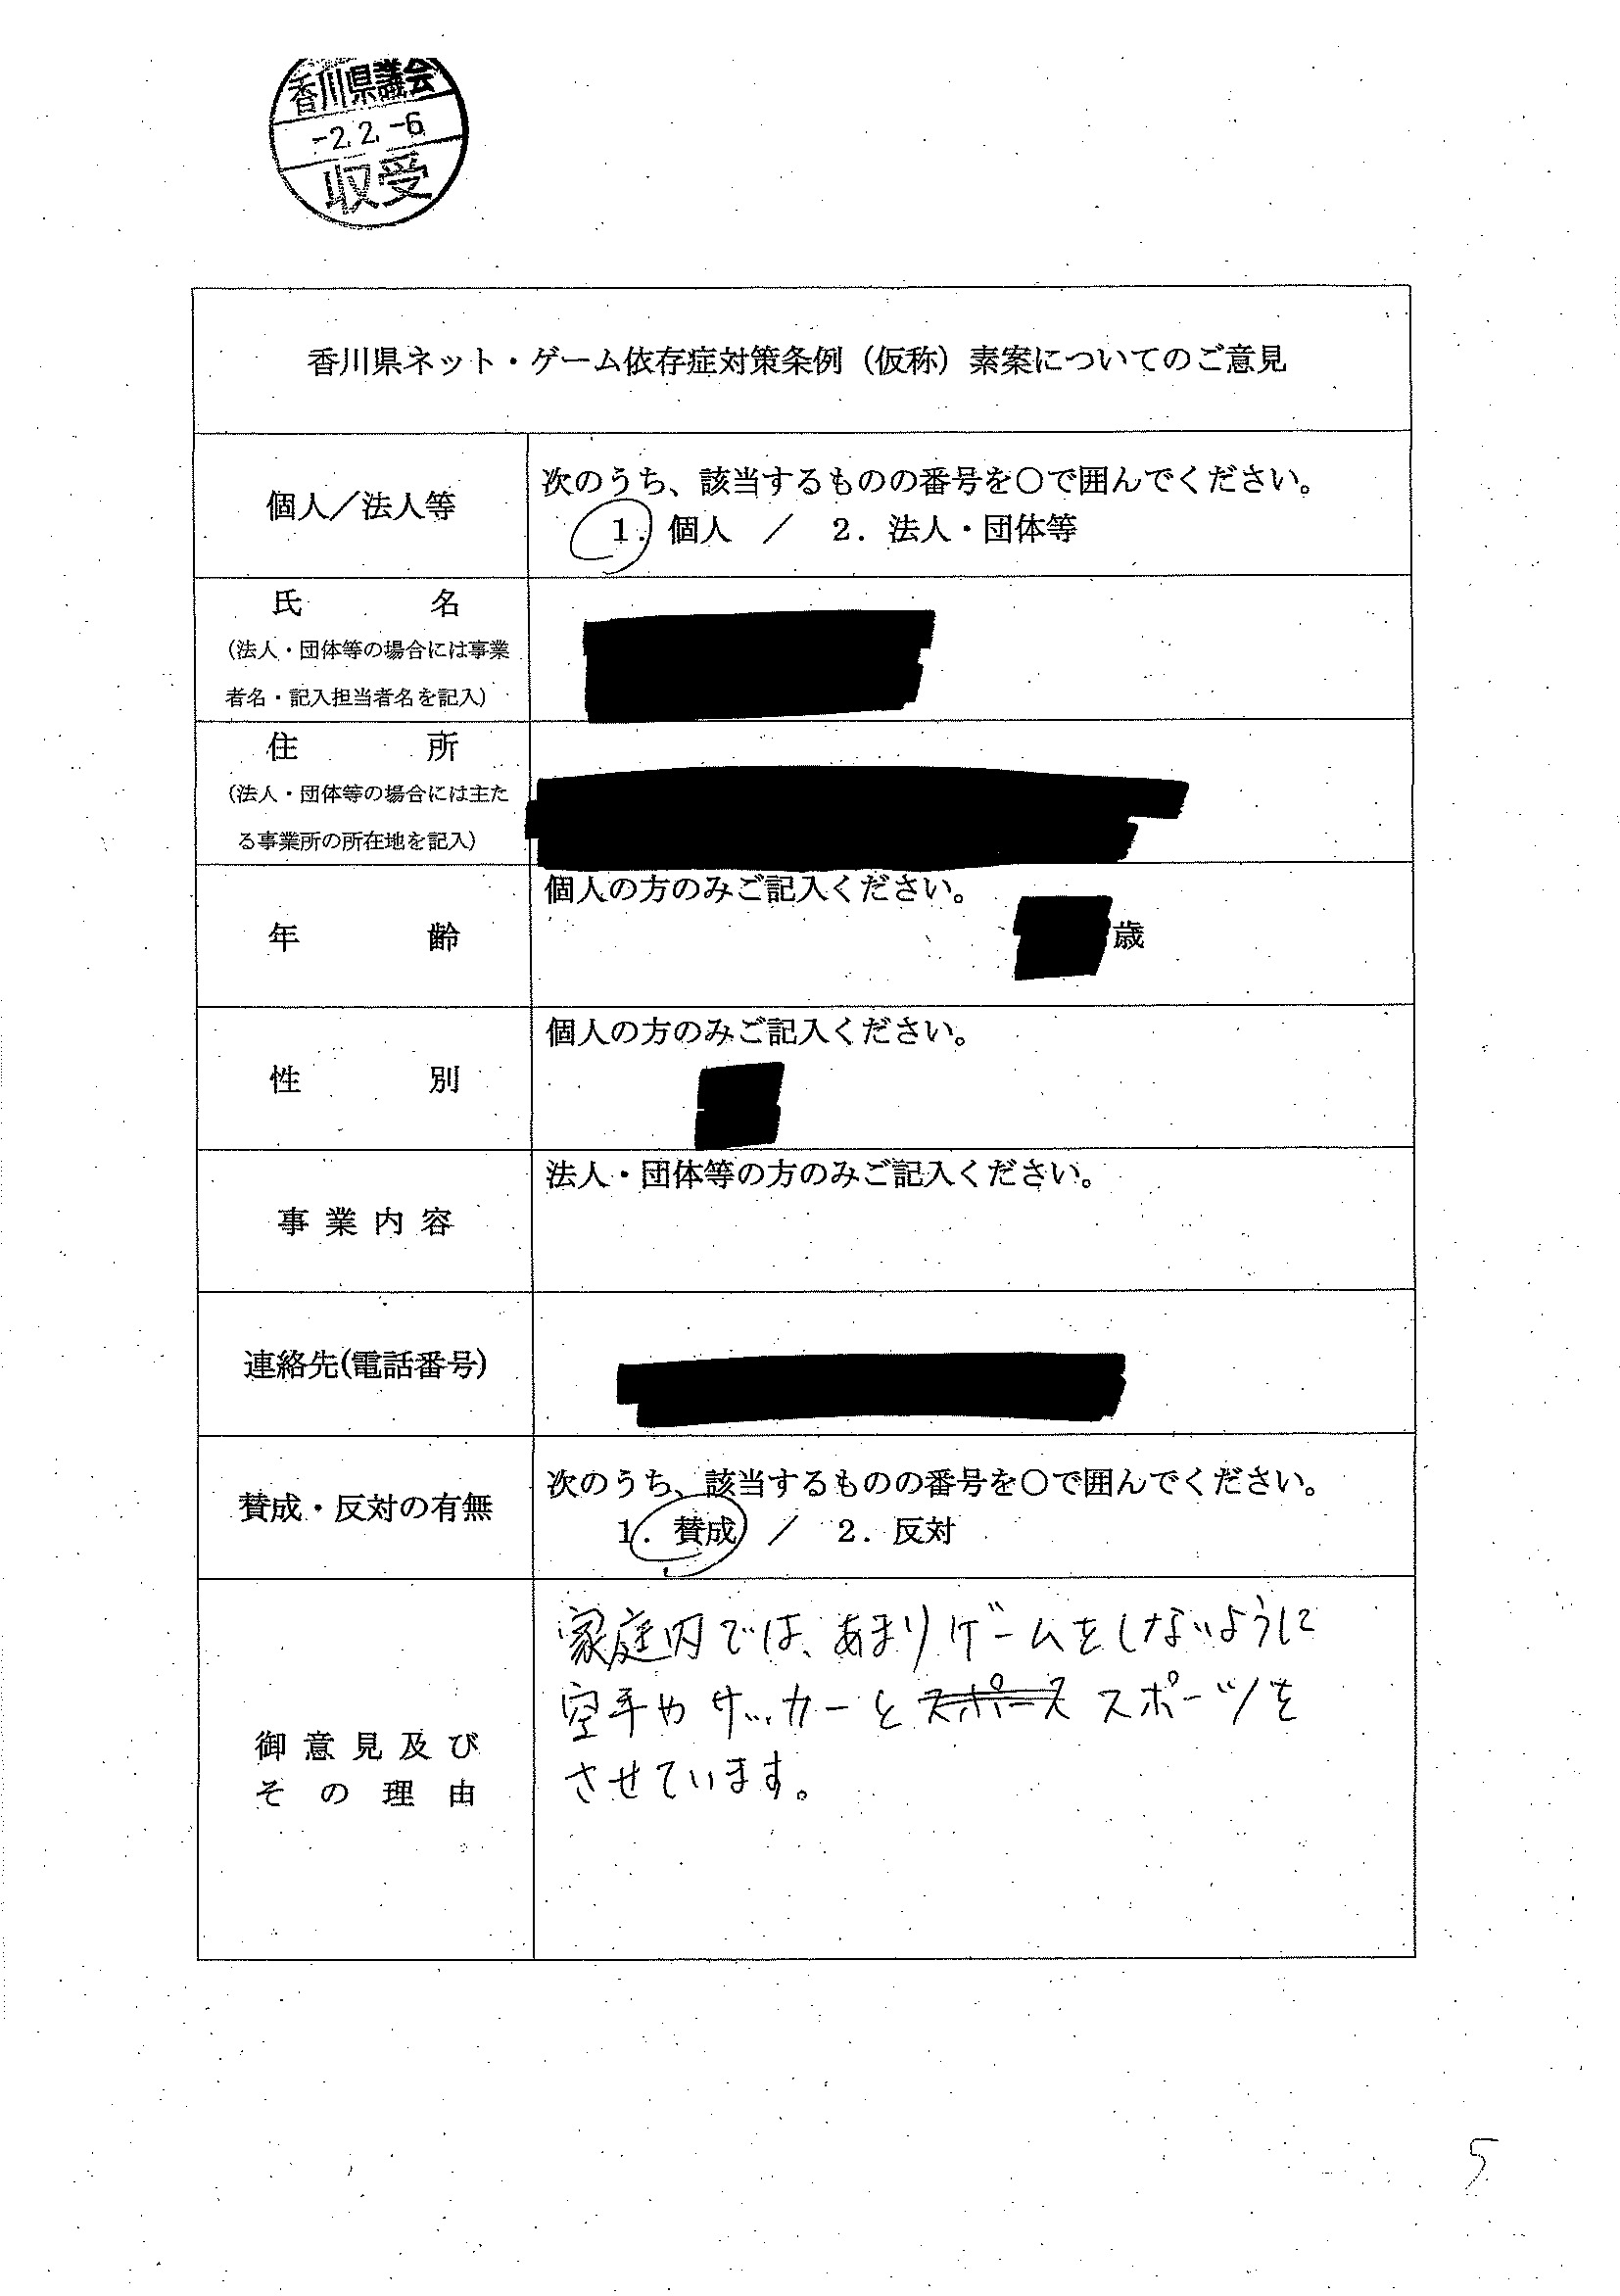 香川県議会
-2.2.-6
収受
香川県ネット・ゲーム依存症対策条例（仮称）素案についてのご意見
個人／法人等
次のうち、該当するものの番号を〇で囲んでください。
1. 個人 ／ 2. 法人・団体等
氏名
（法人・団体等の場合には事業
者名・記入担当者名を記入）
住所
（法人・団体等の場合には主た
る事業所の所在地を記入）
年齢
個人の方のみご記入ください。
歳
性別
個人の方のみご記入ください。
事業内容
法人・団体等の方のみご記入ください。
連絡先(電話番号)
賛成・反対の有無
次のうち、該当するものの番号を〇で囲んでください。
1. 賛成 ／ 2. 反対
御意見及び
その理由
家庭内では、あまりゲームをしないように
空手やサッカーと スポース スポーツを
させています。
5